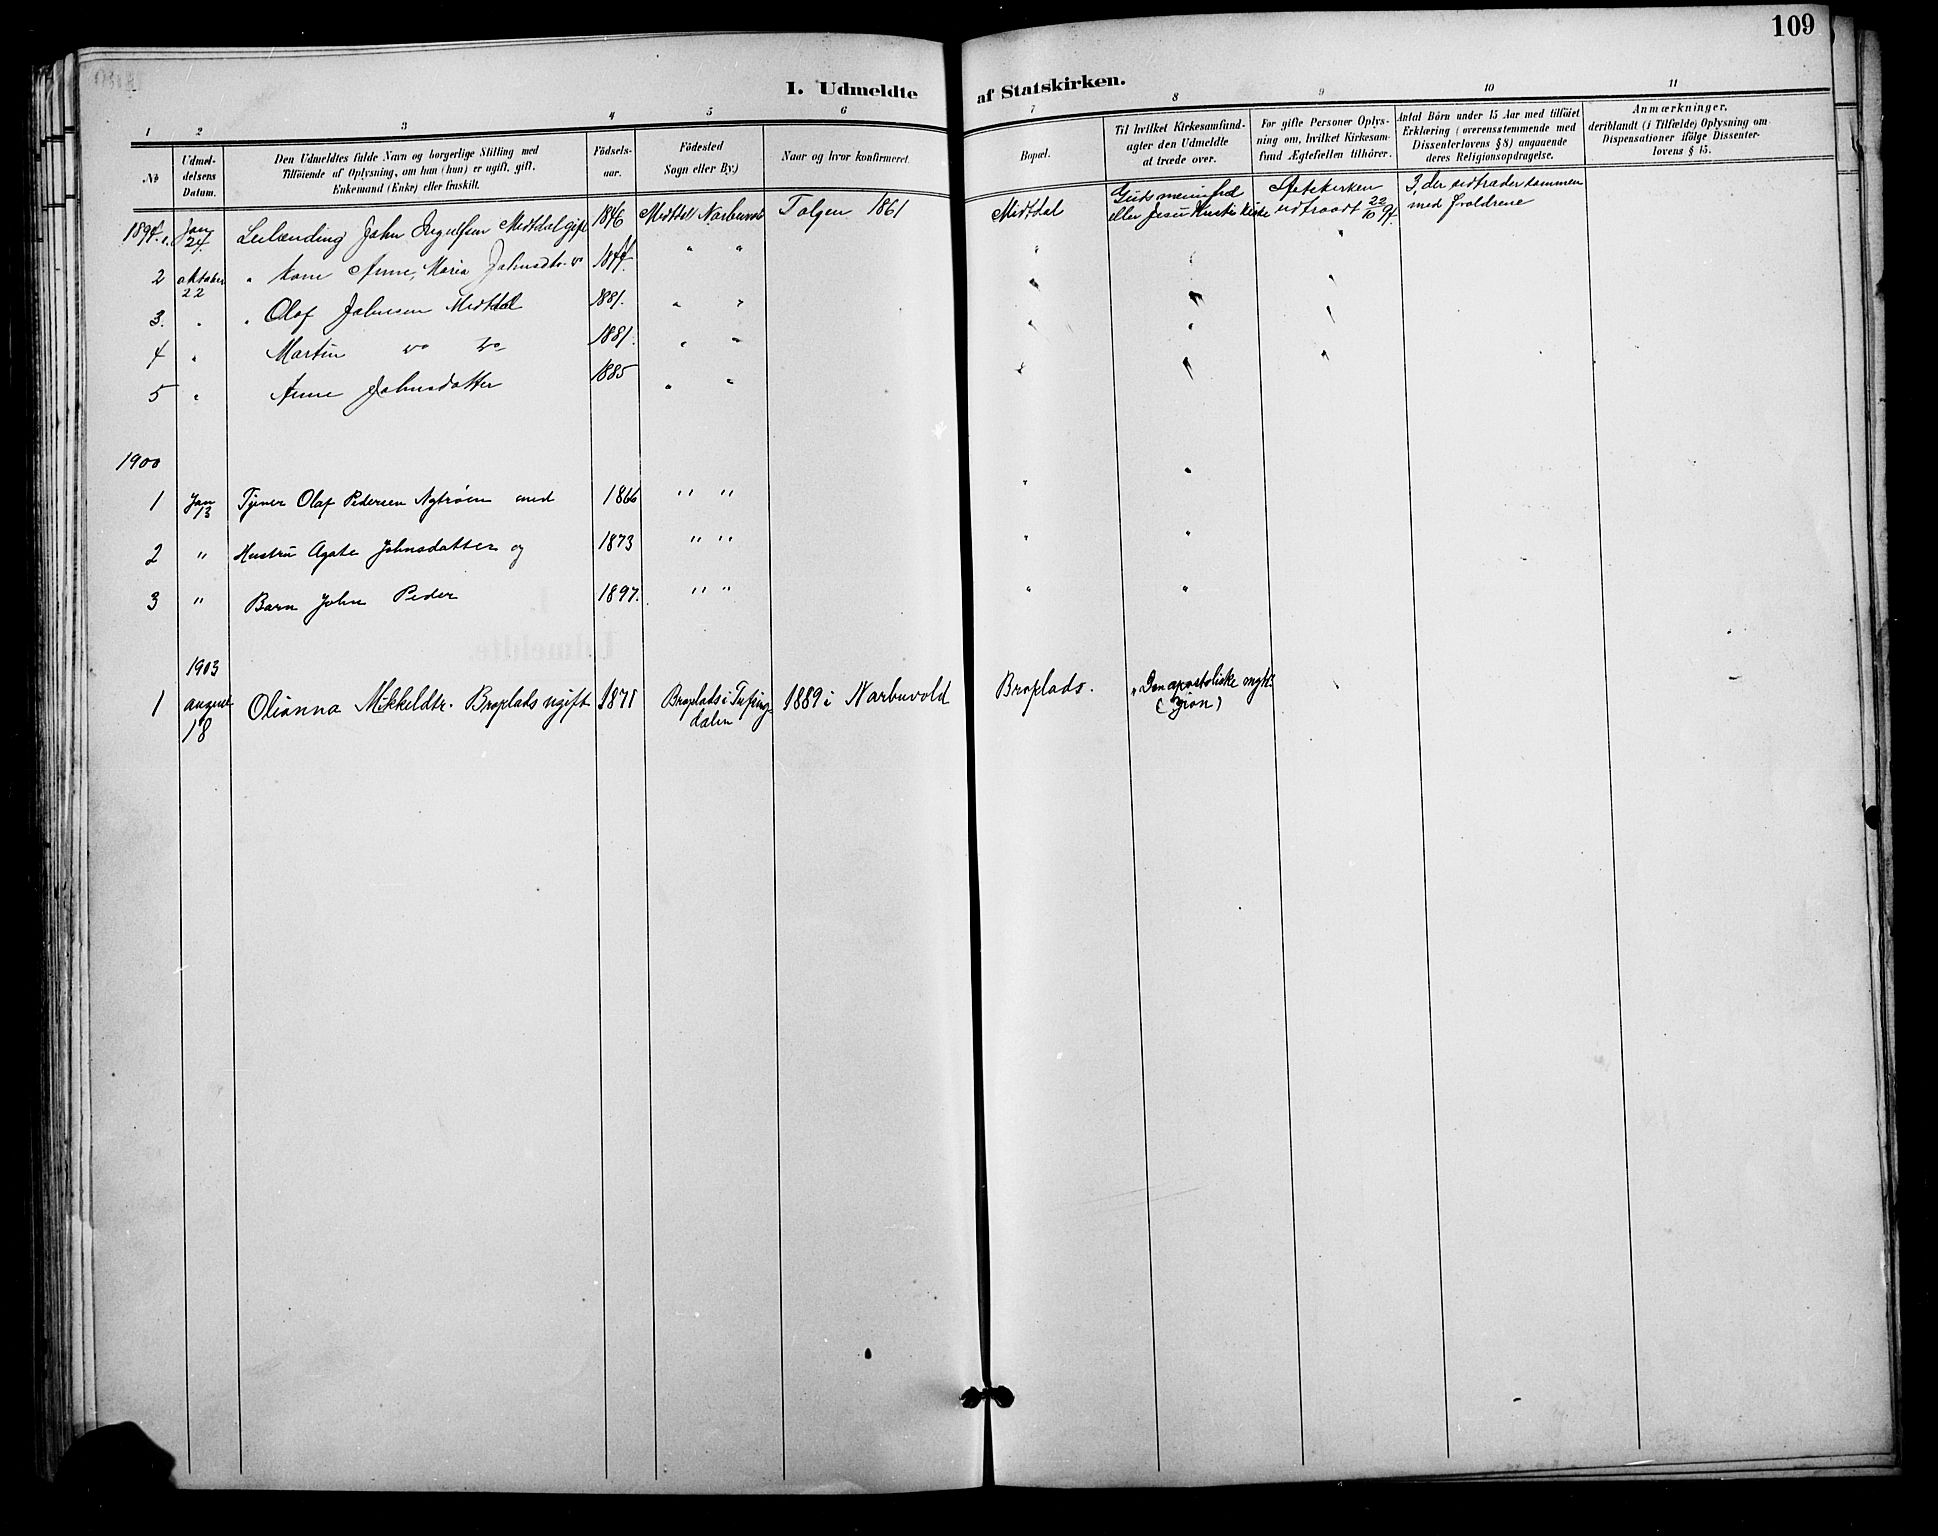 109
I. Udmeldte af Statskirken.
1 2 3 4 5 6 7 8 9 10 11
No
Udmeldelsens Datum.
Den Udmeldtes fulde Navn og borgerlige Stilling med
Tilföiende af Oplysning, om han (hun) er ugift, gift,
Enkemand (Enke) eller fraskilt.
Födsels-
aar.
Födested
Sogn eller By.)
Naar og hvor konfirmeret.
Bopæl.
Til hvilket Kirkesamfund
agter den Udmeldte
at træde over.
For gifte Personer Oplys-
ning om, hvilket Kirkesam-
fund Ægtefællen tilhörer.
Antal Börn under 15 Aar med tilföiet
Erklæring (overensstemmende med
Dissenterlovens § 8) angaaende
deres Religionsopdragelse.
Anmærkninger,
deriblandt (i Tilfælde) Oplysning om
Dispensationer ifölge Dissenter-
lovens § 15.
1894. 1. Jan 24. Leilænding John Ingulfsen Midtdal gift 1846 Midtdal Narbuvold Tolgen 1861 Midtdal
eller Jesu Kristi Kirke
Statskirken
udtraadt 22/10 94.
3, der udtræder sammen
med forældrene
2 oktober 22 " Kone Anne Maria Johnsdtr. 1844. " "
3. " " Olaf Johnsen Midtdal 1881. " "
4 " Martin do do 1881. " "
5 " Anne Johnsdatter 1885 " "
1900
1 Jan 13 Tjener Olaf Pedersen Nytrøen med 1866 " " " "
2 " Hustru Agate Johnsdatter og 1873 " " " "
3 " Barn John Peder 1897. " " " "
1903
1 august 18 Olianna Mikkeldtr. Broplads ugift 1871 Broplads i Tufsing-
dalen 1889 i Narbuvold Broplads. "Den apostoliske mgh."
(Zion)